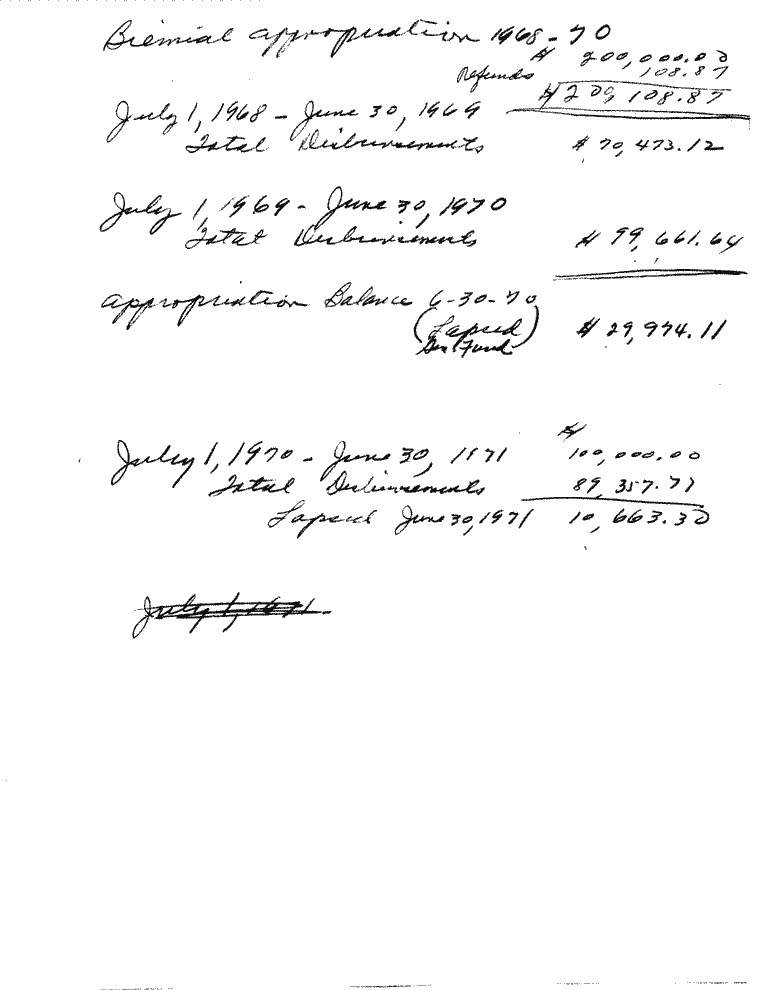 Biennial appropriation 1968-70
$ 200,000.00
Refunds 108.87
$200,108.87
July 1, 1968 - June 30, 1969
Total Disbursements $ 70,473.12
July 1, 1969 - June 30, 1970
Total Disbursements $ 99,661.64
appropriation Balance 6-30-70
(Lapsed) $ 29,974.11
Gen Fund
$
July 1, 1970 - June 30, 1971 100,000.00
Total Disbursements 89,357.71
Lapsed June 30, 1971 10,663.30
July 1, 1971